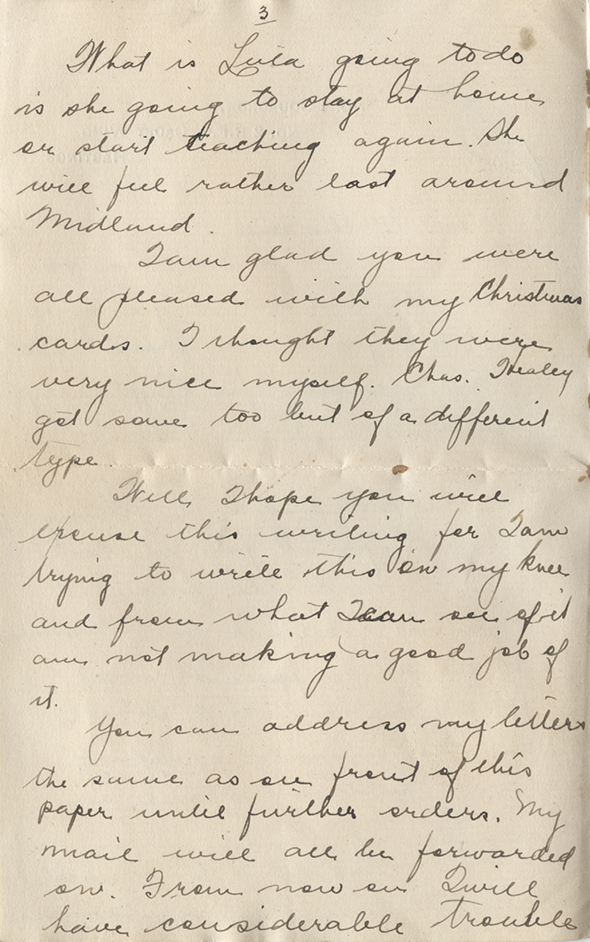 3
What is Lula going to do
is she going to stay at home
or start teaching again. She
will feel rather lost around
Midland.
I am glad you were
all pleased with my Christmas
cards. I thought they were
very nice myself. Chas. Healey
got some too but of a different
type.
Well, I hope you will
excuse this writing for I am
trying to write this on my knee
and from what I can see of it
am not making a good job of
it.
You can address my letters
the same as on front of this
paper until further orders. My
mail will all be forwarded
on. From now on I will
have considerable trouble